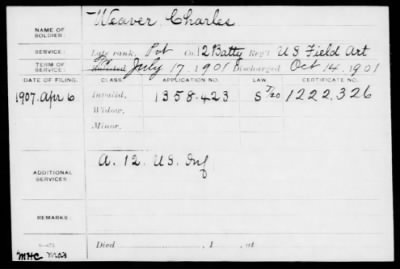 NAME OF SOLDIER: Weaver Charles
SERVICE: Late rank, Pvt Co. 12 Batty Reg't U S Field Art
TERM OF SERVICE: Enlisted July 17, 1901 Discharged Oct 14, 1901
DATE OF FILING. CLASS. APPLICATION NO. LAW. CERTIFICATE NO.
1907. Apr 6 Invalid, 1358.423 1222.326
Widow,
Minor,
ADDITIONAL SERVICES: A. 12. U.S. Inf
REMARKS:
Died , 1 , at
MHC